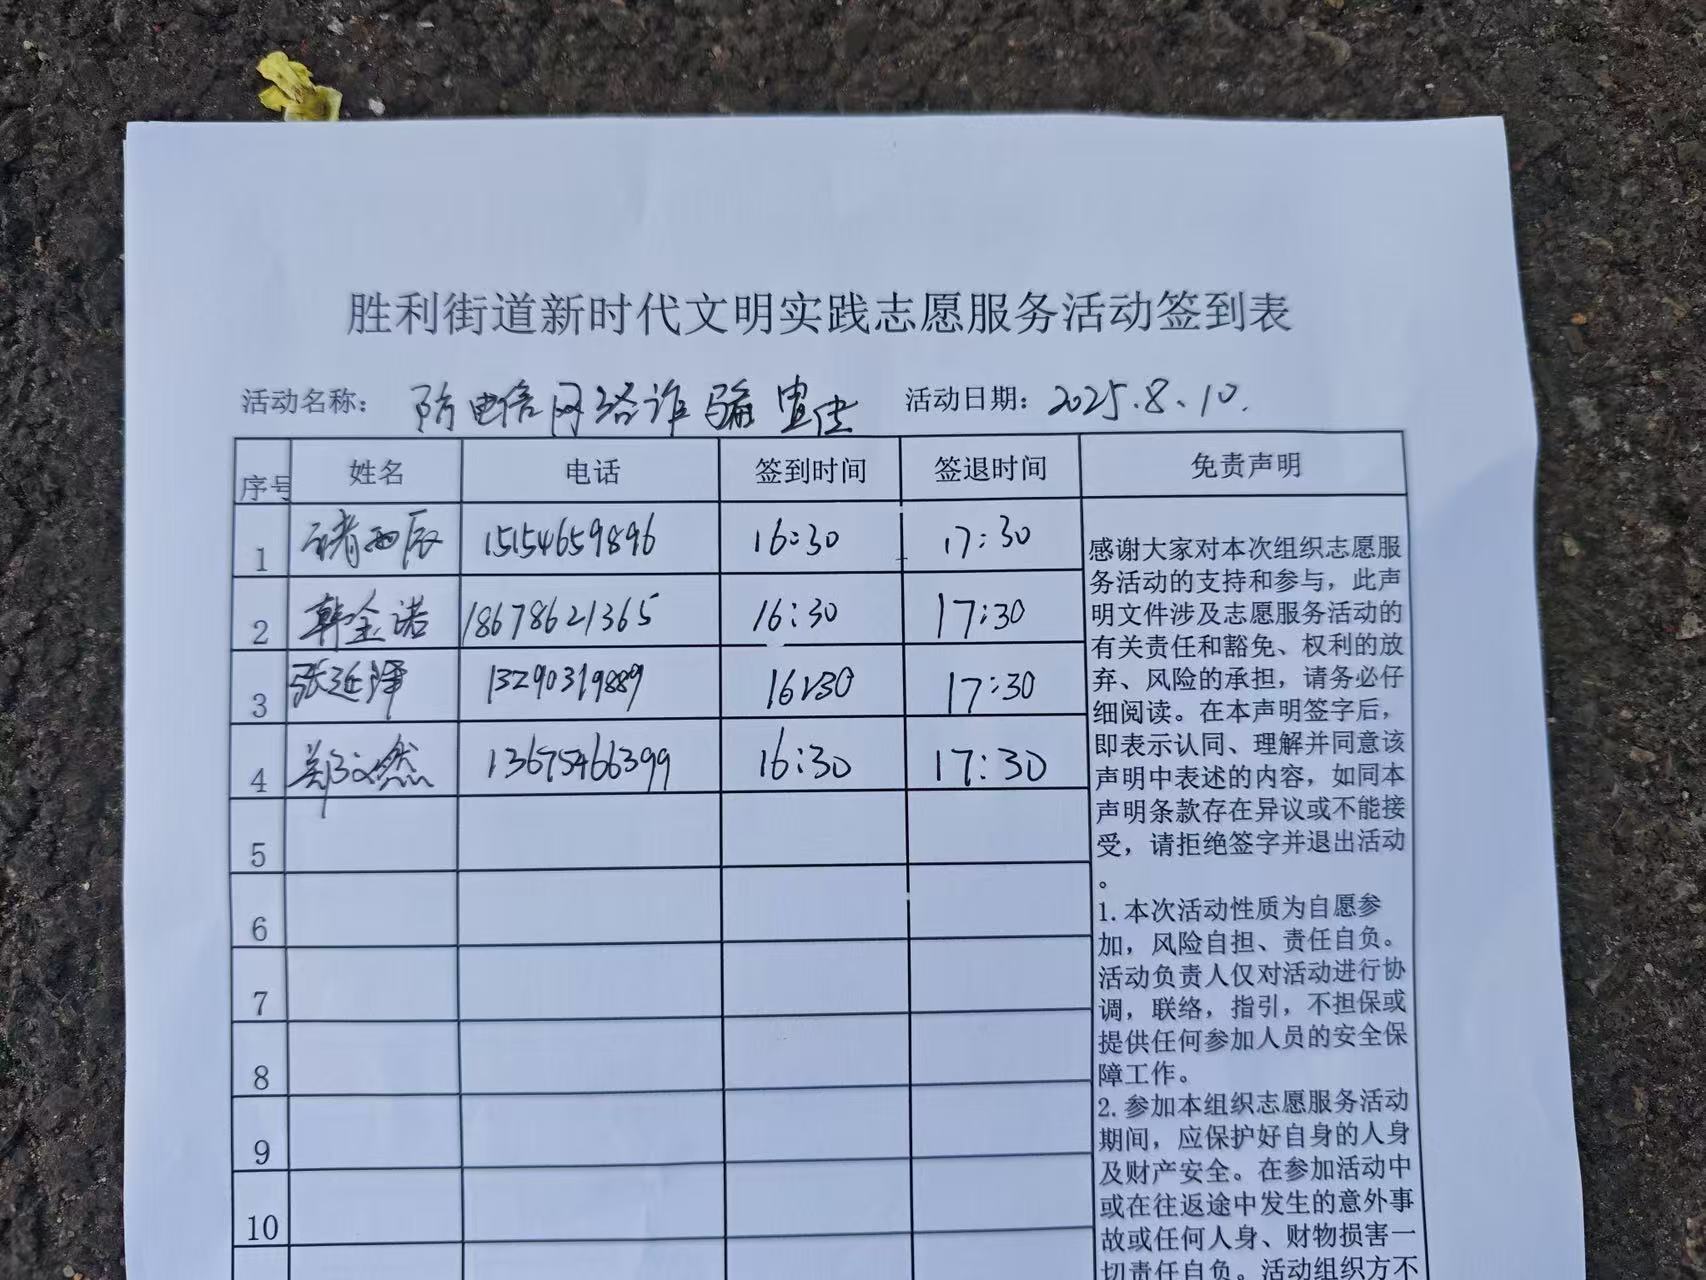 胜利街道新时代文明实践志愿服务活动签到表
活动名称： 防电信网络诈骗宣传 活动日期：2025.8.10.
序号 姓名 电话 签到时间 签退时间 免责声明
1 褚雨辰 15154659896 16:30 17:30
2 韩金诺 18678621365 16:30 17:30
3 张延泽 13290319889 16:30 17:30
4 郑文然 13675466399 16:30 17:30
5
6
7
8
9
10
感谢大家对本次组织志愿服
务活动的支持和参与，此声
明文件涉及志愿服务活动的
有关责任和豁免、权利的放
弃、风险的承担，请务必仔
细阅读。在本声明签字后，
即表示认同、理解并同意该
声明中表述的内容，如同本
声明条款存在异议或不能接
受，请拒绝签字并退出活动
。
1.本次活动性质为自愿参
加，风险自担、责任自负。
活动负责人仅对活动进行协
调，联络，指引，不担保或
提供任何参加人员的安全保
障工作。
2.参加本组织志愿服务活动
期间，应保护好自身的人身
及财产安全。在参加活动中
或在往返途中发生的意外事
故或任何人身、财物损害一
切责任自负。活动组织方不